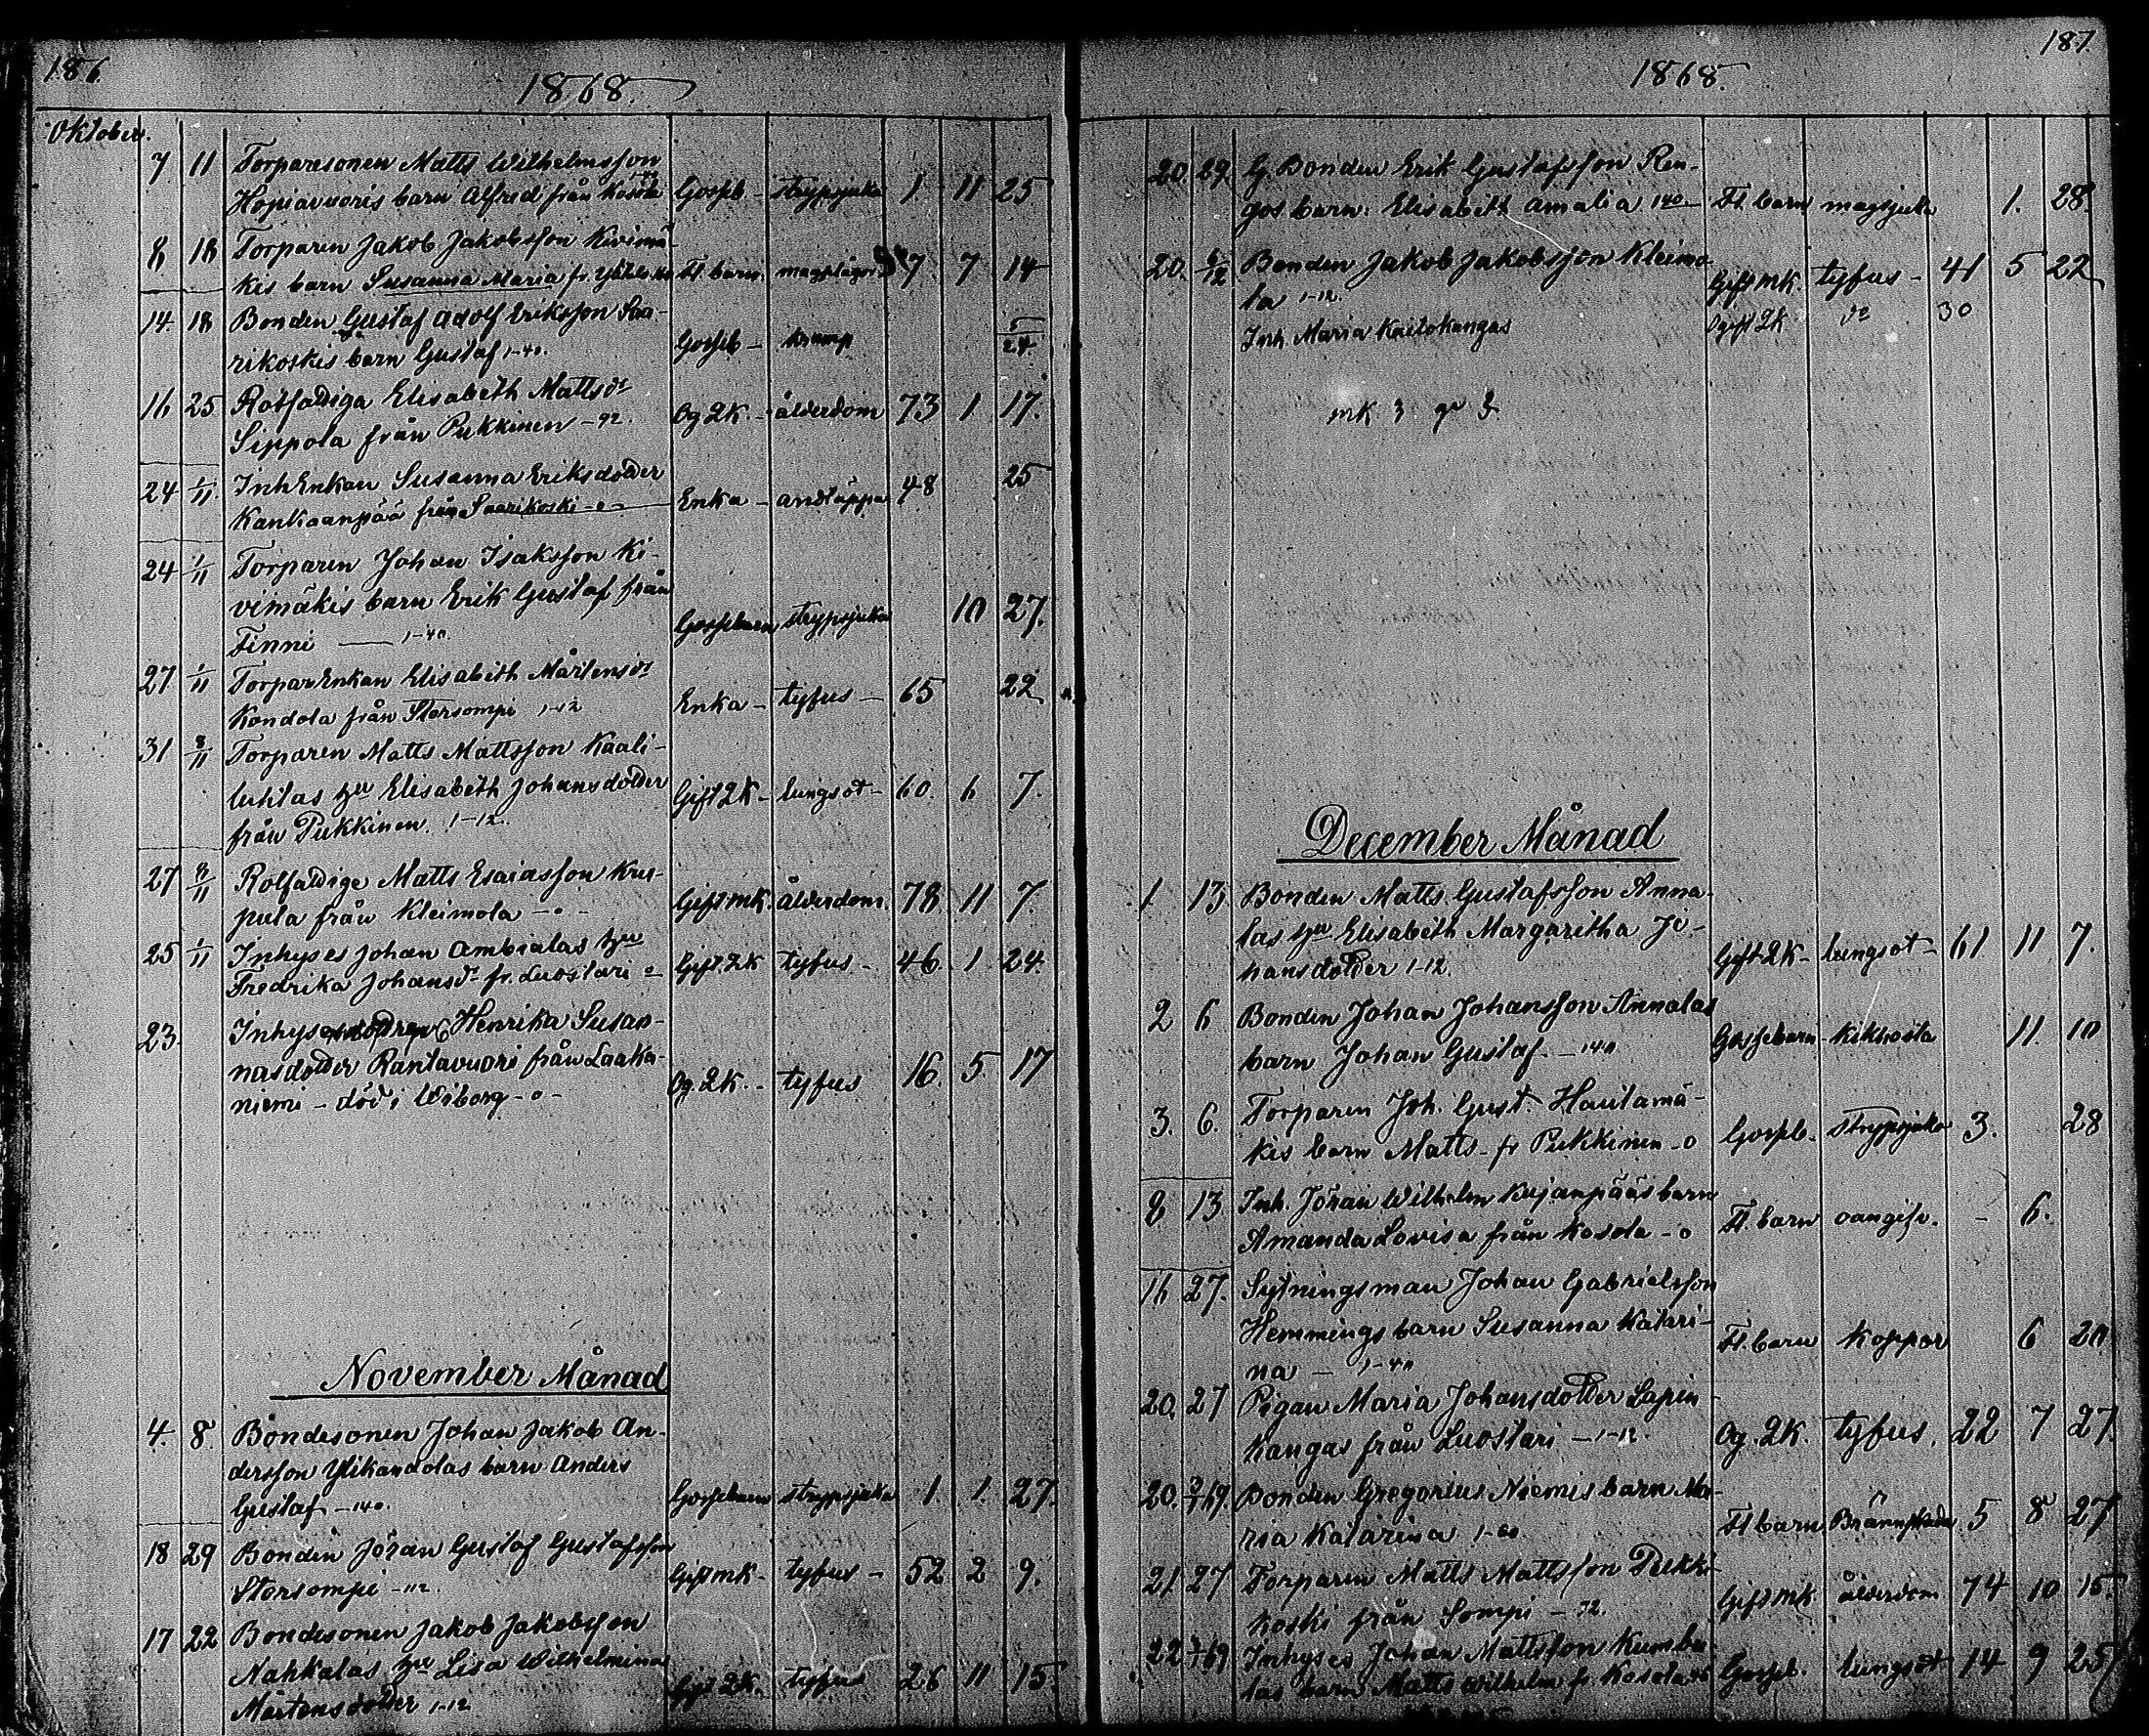 186.
1868.
Oktober.
7 11 Torparesonen Matts Wilhelmsson
Hopiavuoris barn Alfred från Kosola Gosseb. - strypsjuka 1. 11 25
8 18 Torparen Jakob Jakobsson Kivimä-
kis barn Susanna Maria fr. Fl. barn. magplågor 7 7 14
14. 18 Bonden Gustaf Adolf Eriksson Saa-
rikoskis barn Gustaf 1-40. Gosseb - kramp 5/24.
16 25 Rotfattiga Elisabeth Mattsdr
Sippola från Pukkinen - 92. Og 2K. - ålderdom 73 1 17.
24 1/11 Inh Enkan Susanna Eriksdotter
Kankaanpää från Saarikoski - o - Enka - andtäppa 48 25
24 1/11 Torparen Johan Isaksson Ki-
vimäkis barn Erik Gustaf från
Finni — 1-40. Gossebarn strypsjuka 10 27.
27 1/11 TorparEnkan Elisabeth Mårtensdr
Kondola från Storsompi 1-12 Enka - tyfus - 65 22
31 8/11 Torparen Matts Mattsson Kaali-
luhtas hu Elisabeth Johansdotter Gift 2K - lungsot - 60. 6 7.
från Pukkinen. 1-12.
27 8/11 Rotfattige Matts Esaiasson Kru-
pula från Kleimola - o - Gift mk. ålderdom. 78 11 7.
25 1/11 Inhyses Johan Ambialas hu
Fredrika Johansdr fr. Luostari - o Gift 2K tyfus - 46. 1 24.
23 Inhyses Henrika Susan-
nasdotter Rantavuori från Laaka-
niemi - död i Wiborg - o - Og. 2K. - tyfus 16. 5 17
November Månad
4. 8. Bondesonen Johan Jakob An-
dersson Ylikandolas barn Anders
Gustaf - 140. Gossebarn strypsjuka 1. 1. 27.
18 29 Bonden Jöran Gustaf Gustafsson
Storsompi - 112. Gift mk - tyfus - 52 2 9.
17 22 Bondesonen Jakob Jakobsson
Nahkalas hu Lisa Wilhelmina
Mårtensdotter 1-12 Gift 2K. tyfus 26 11 15.
187.
1868.
20. 29. G. Bonden Erik Gustafsson Ren-
gos barn: Elisabeth Amalia 140 - Fl. barn magsjuka 1. 28.
20. 6/12 Bonden Jakob Jakobsson Kleimo-
la 1-12. Gift mk. tyfus - 41 5 22
Inh Maria Kaitokangas Ogift 2K do 30
mk 3 qv 3
December Månad
1 13 Bonden Matts Gustafsson Anna-
las hu Elisabeth Margaritha Jo-
hansdotter 1-12. Gift 2K - lungsot - 61 11 7.
2 6 Bonden Johan Johansson Annalas
barn Johan Gustaf - 140 Gossebarn - kikhosta 11. 10
3. 6. Torparen Joh. Gust. Hautamä-
kis barn Matts - fr Pukkinen - o Gosseb. strypsjuka 3. 28
8 13 Inh. Jöran Wilhelm Kujanpääs barn
Amanda Lovisa från Kosola - o Fl. barn oangifv. - 6.
16 27. Sytningsman Johan Gabrielsson
Hemmings barn Susanna Katari-
na - 1-40 Fl. barn koppor 6 20
20. 27 Pigan Maria Johansdotter Lapin-
kangas från Luostari - 1-12. Og. 2K. tyfus. 22 7 27.
20. 3/1 69. Bonden Gregorius Niemis barn Ma-
ria Katarina 1-60 Fl barn Brännskada 5 8 27
21. 27 Torparen Matts Mattsson Pukki-
koski från Sompi - 72. Gift mk ålderdom 74 10 15.
22 1/69 Inhyses Johan Mattsson Kumba-
las barn Matts Wilhelm fr. Kosola Gosseb. lungsot 14 9 25